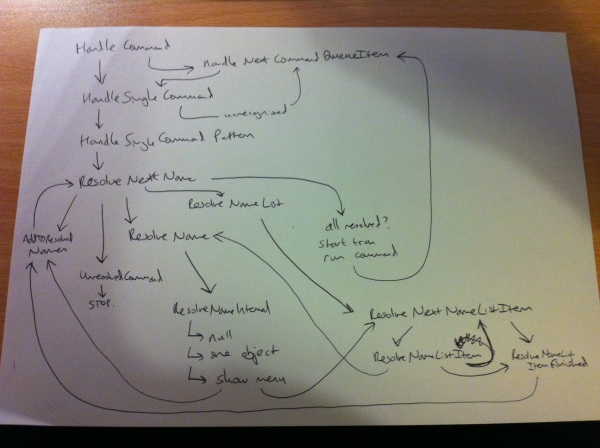 Handle Command
Handle Next Command Queue Item
Handle Single Command
unrecognised
Handle Single Command Pattern
Resolve Next Name
Resolve Name List
Add To Resolved
Names
Resolve Name
all resolved?
start tran
run command
Unresolved Command
STOP.
Resolve Name Internal
null
one object
show menu
Resolve Next Name List Item
Resolve Name List Item
Resolve Name List
Item Finished